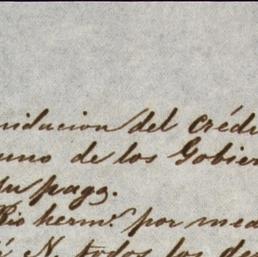 nidacion del crédi
uno de los Gobier
su paga.
Rio herm.º por med
N. todos los de